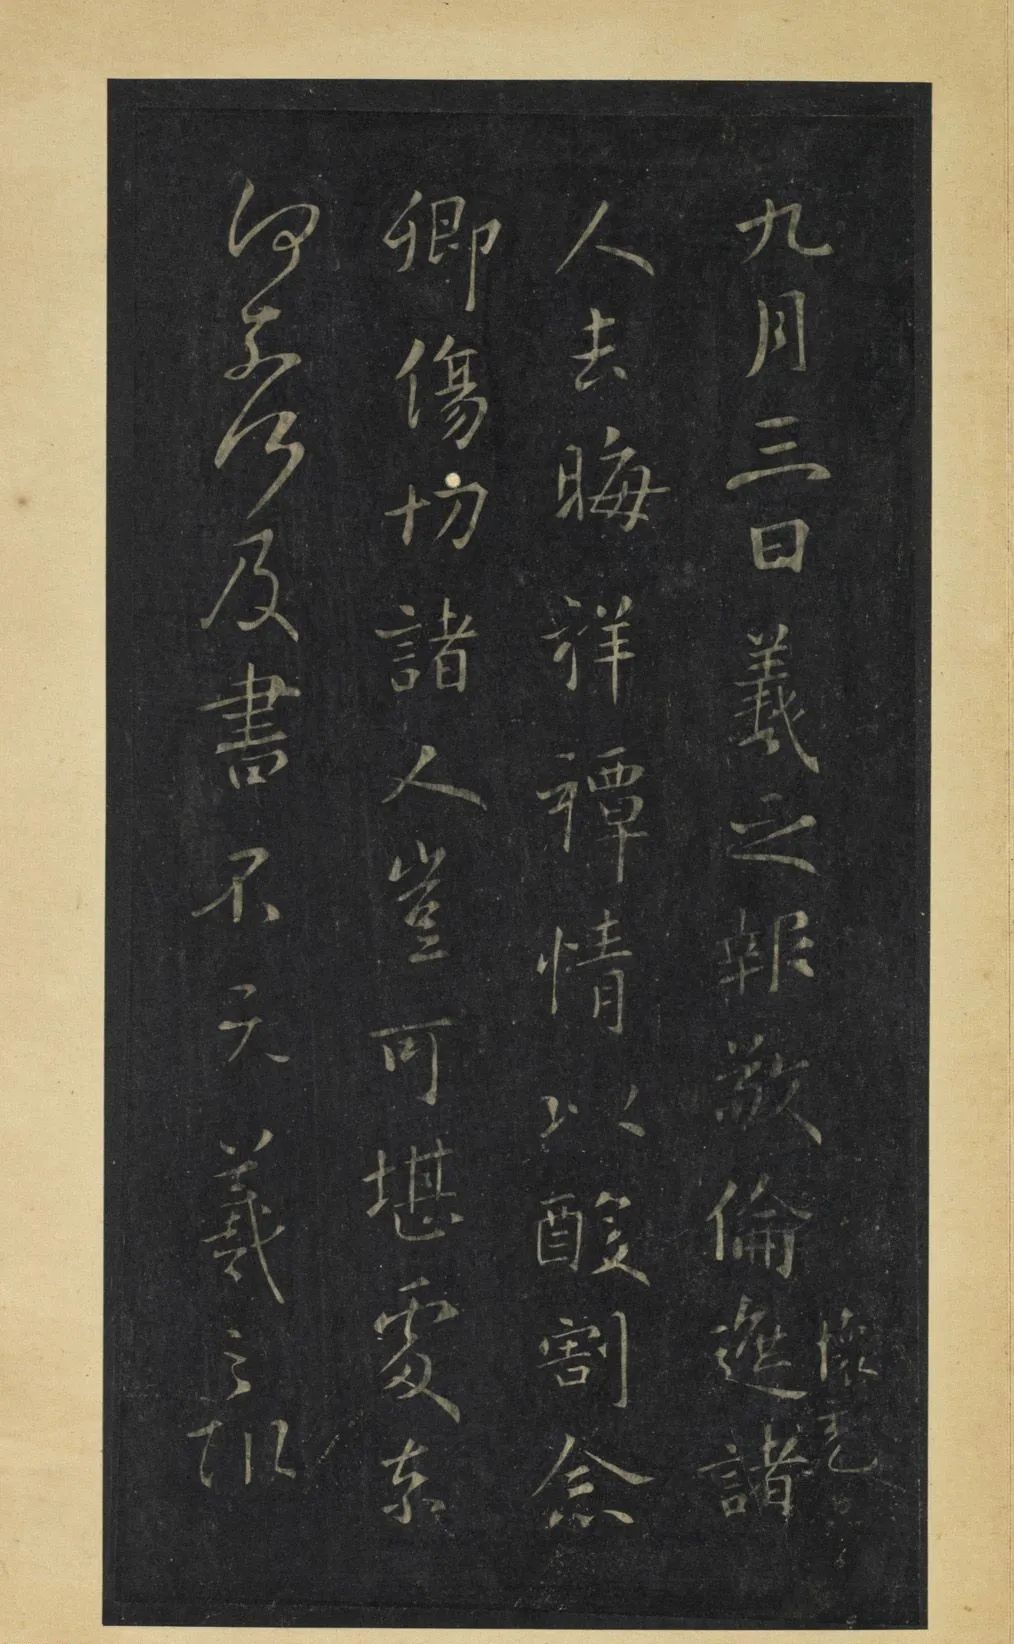 懷充
九月三日羲之報敬倫遮諸
人去晦祥禫情以酸割念
卿傷切諸人豈可堪處奈
何奈何及書不羲之報